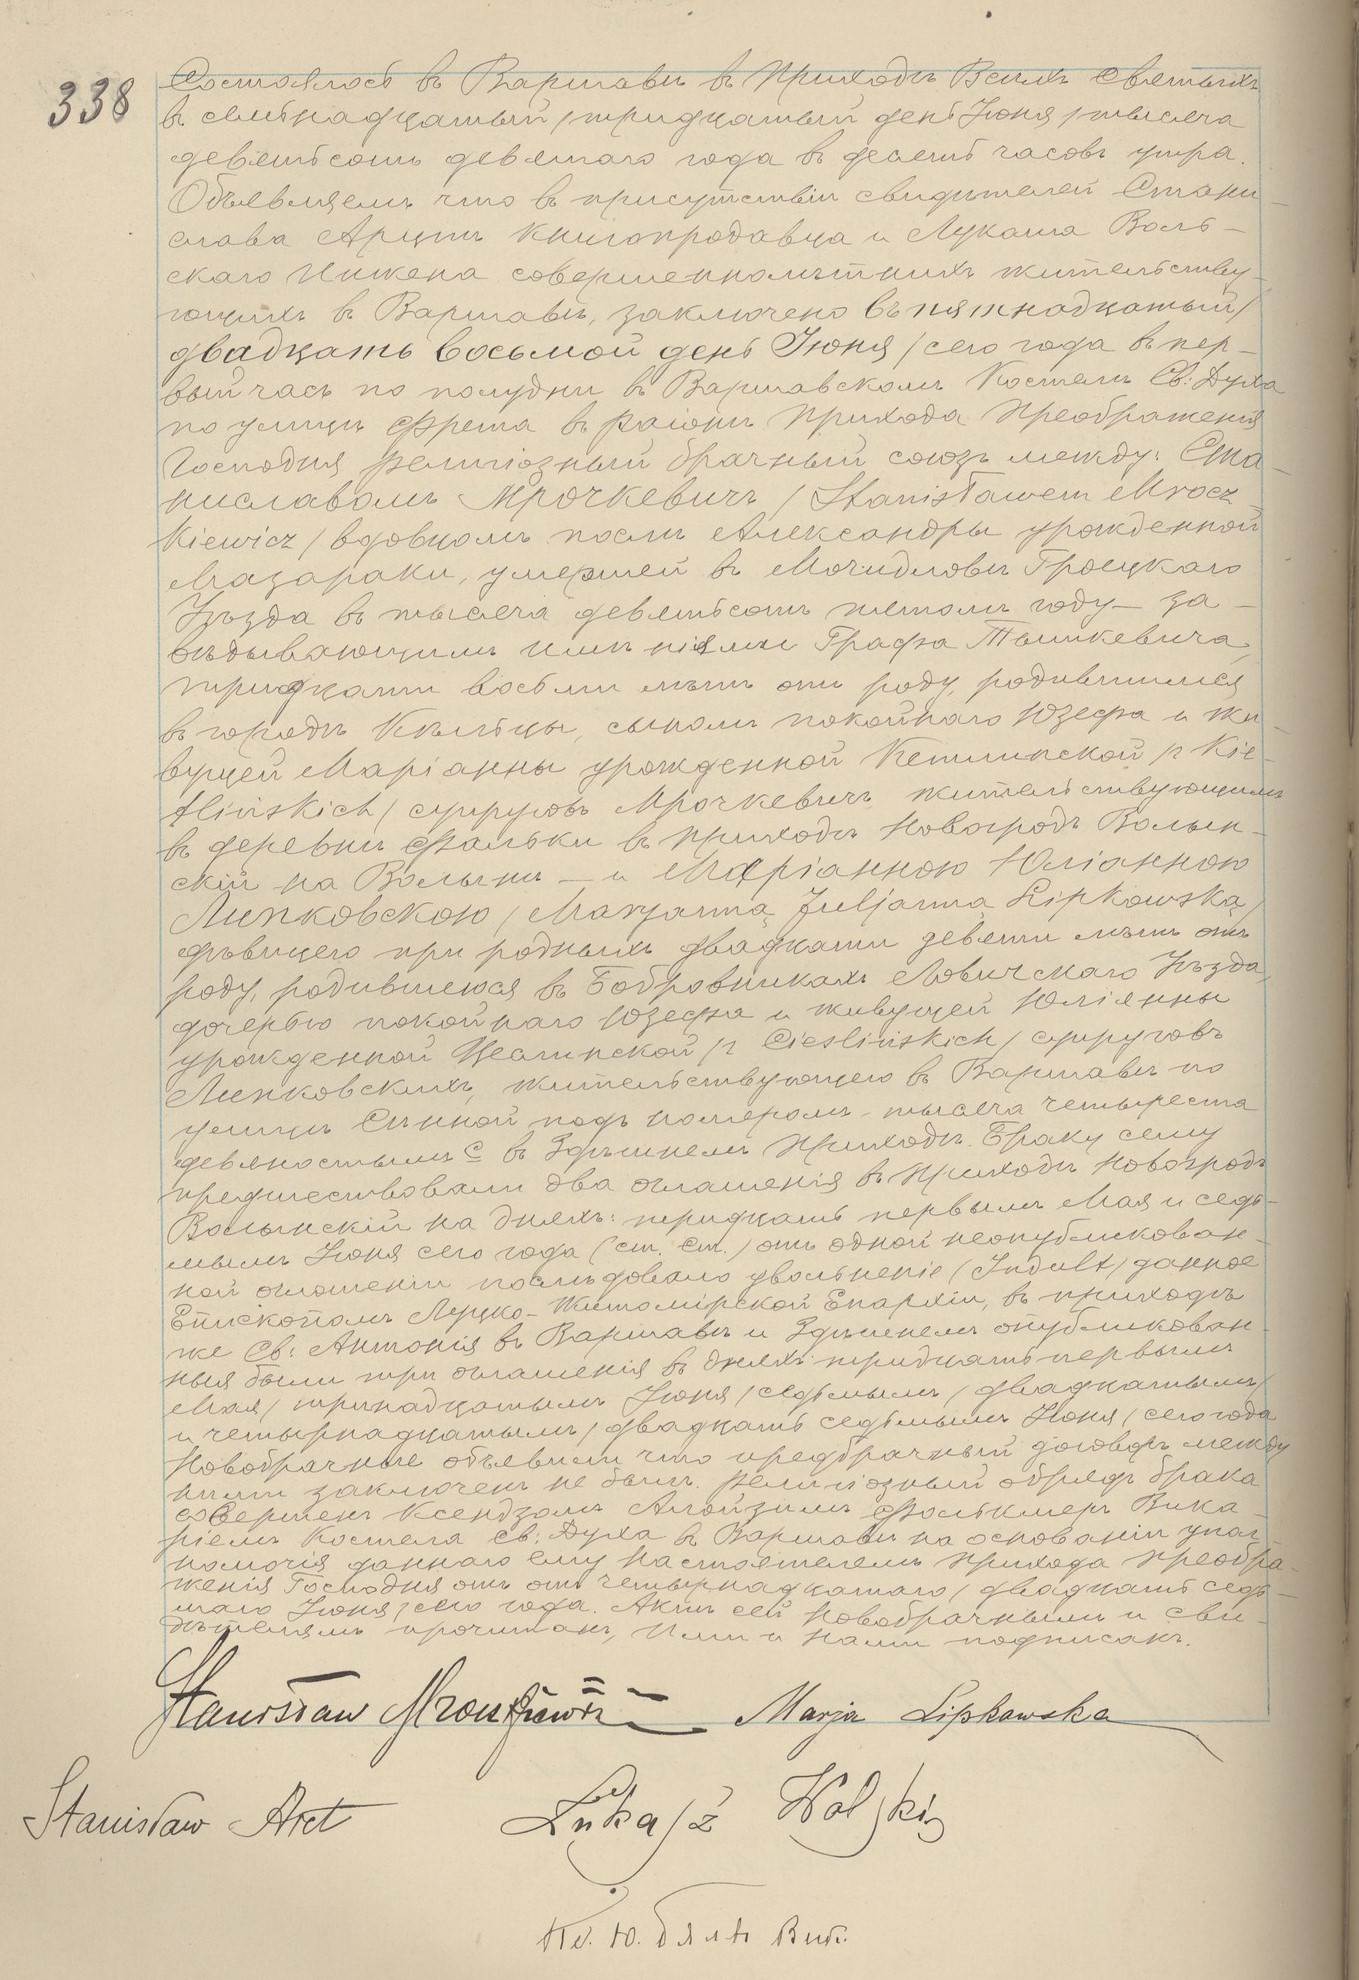 338
Состоялось въ Варшавѣ въ Приходѣ Всѣхъ Святыхъ
въ семнадцатый /тридцатый день Іюня/ тысяча
девятьсотъ девятаго года въ десять часовъ утра.
Объявляемъ что въ присутствіи свидѣтелей Стани-
слава Арцтъ книгопродавца и Лукаша Воль-
скаго Инжена совершеннолѣтнихъ жительству-
ющихъ въ Варшавѣ, заключено въ пятнадцатый/
двадцать восьмой день Іюня/ сего года въ пер-
вый часъ по полудни въ Варшавскомъ Костелѣ Св: Духа
по улицѣ Фрета въ районѣ Прихода Преображенія
Господня религіозный брачный союзъ между: Ста-
ниславомъ Мрочкевичъ /Stanisławem Mrocz
kiewicz/ вдовцомъ послѣ Александры урожденной
Мазараки, умершей въ Гроецкаго
Уѣзда въ тысяча девятьсотъ пятомъ году – за-
вѣдывающимъ имѣніями Графа Тышкевича,
тридцати восьми лѣтъ отъ роду, родившимся
въ городѣ Кѣльцы, сыномъ покойнаго Юзефа и жи-
вущей Маріанны урожденной Кетлинской /z Kie-
tlińskich/ супруговъ Мрочкевичъ, жительствующимъ
въ деревнѣ Фальки въ приходѣ Новоградъ Волын-
скій на Волыни – и Маріанною Юліанною
Липковскою /Maryanną Juljanną Lipkowską/
дѣвицею при родныхъ двадцати девяти лѣтъ отъ
роду, родившеюся въ Бобровникахъ Ловичскаго Уѣзда,
дочерью покойнаго Юзефа и живущей Юліянны
урожденной Цеслинской /z Cieślińskich/ супруговъ
Липковскихъ, жительствующею въ Варшавѣ по
улицѣ Сѣнной подъ номеромъ тысяча четыреста
девяностымъ с въ Здѣшнемъ Приходѣ. Браку сему
предшествовали два оглашенія въ Приходѣ Новоградъ
Волынскій на дняхъ: тридцать первымъ Мая и седь-
мымъ Іюня сего года (ст. ст.) отъ одной неопубликован-
ной оглашеніи послѣдовало увольненіе /Indult/ данное
Епископомъ Луцко-Житомірской Епархіи, въ приходѣ
же Св: Антонія въ Варшавѣ и Здѣшнемъ опубликован-
ныя были три оглашенія въ дняхъ: тридцать первымъ
Мая/ тринадцатымъ Іюня/ седьмымъ/ двадцатымъ/
и четырнадцатымъ/ двадцать седьмымъ Іюня/ сего года
Новобрачные объявили что предбрачный договоръ между
ними заключенъ не былъ. Религіозный обрядъ брака
совершенъ Ксендзомъ Алойзимъ Фолькмеръ Вика-
ріемъ Костела Св: Духа въ Варшавѣ на основаніи упол-
номочія даннаго ему Настоятелемъ Прихода Преобра-
женія Господня отъ отъ четырнадцатаго/ двадцать седь-
маго Іюня/ сего года. Актъ сей Новобрачнымъ и сви-
дѣтелямъ прочитанъ, Ими и Нами подписанъ.
Stanisław Mroczkiewicz Marja Lipkowska
Stanisław Arct Łukasz Wolski
Кс. Ю. Бялы Вик.